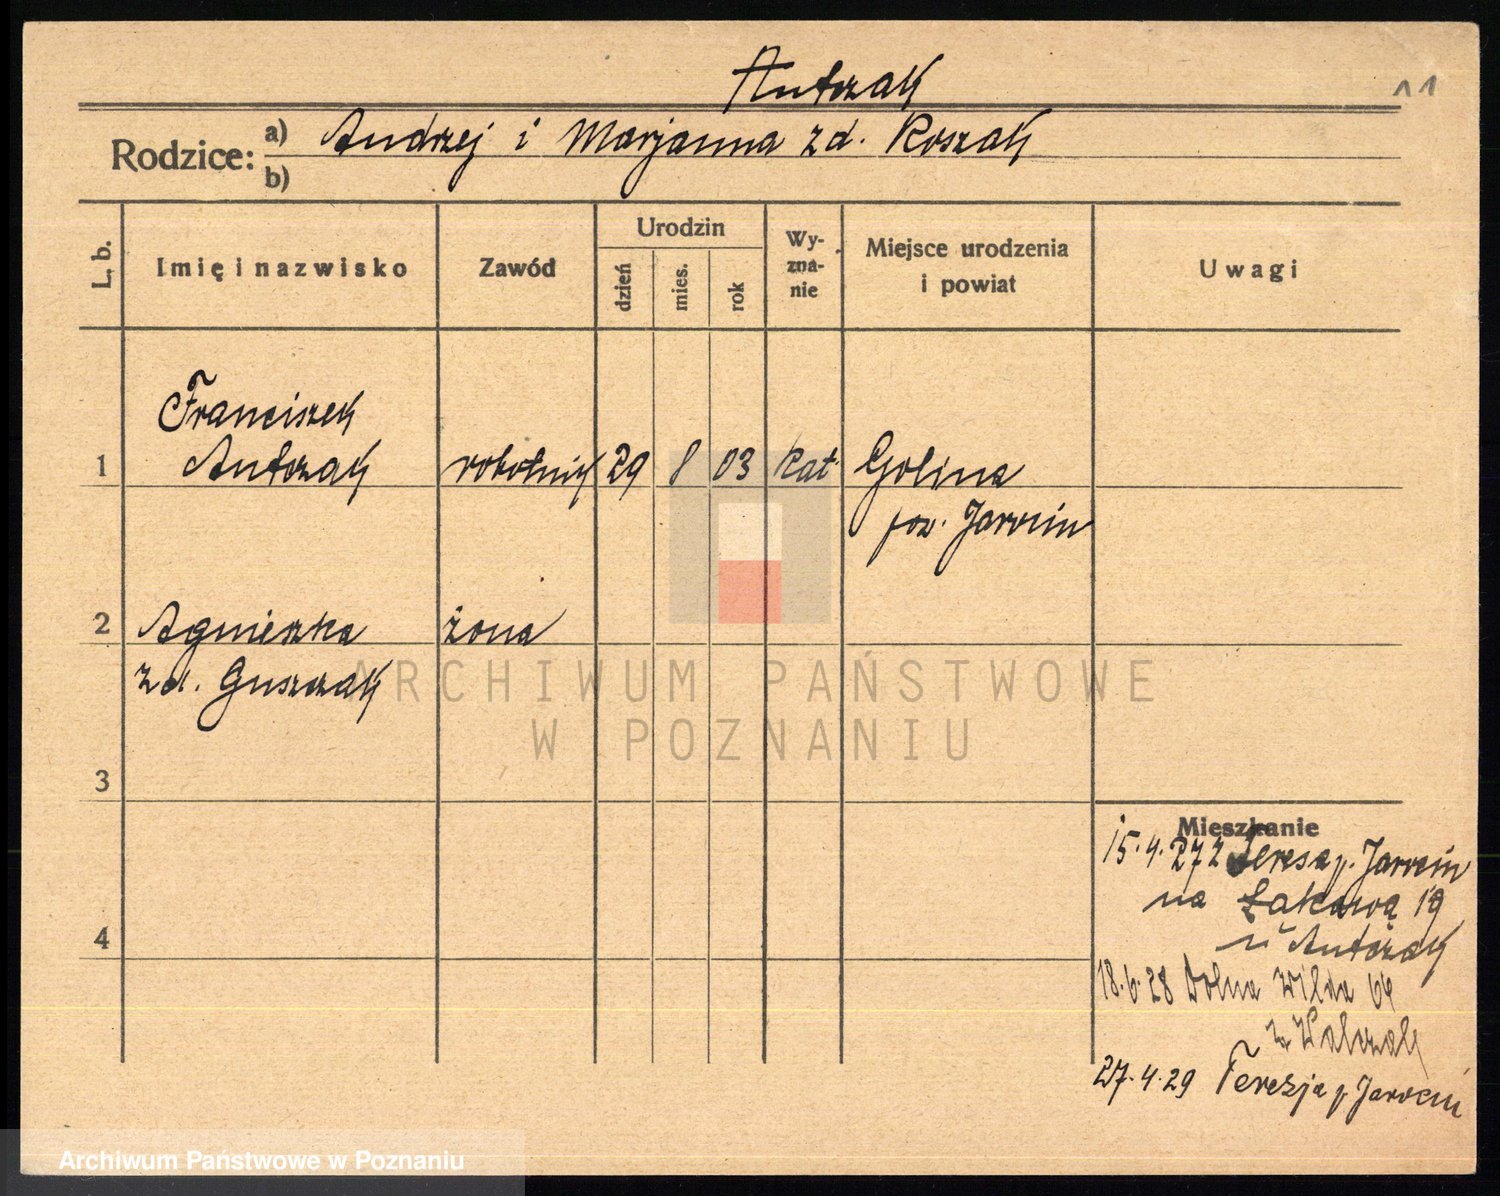 Antczak
11
Rodzice: a) Andrzej i Marjanna zd. Koszak
b)
L. b.
Imię i nazwisko
Zawód
Urodzin
dzień
mies.
rok
Wy-
zna-
nie
Miejsce urodzenia
i powiat
Uwagi
Franciszek
1 Antczak robotnik 29 8 03 kat Golina
pow. Jarocin
2 Agnieszka żona
zd. Guszczak
ARCHIWUM PAŃSTWOWE
W POZNANIU
3
4
Mieszkanie
15.4.27 z Teresa p. Jarocin
na Łąkową 19
u Antczak
18.6.28 Dolna Wilda 64
u Walczak
27.4.29 Terezja p Jarocin
Archiwum Państwowe w Poznaniu